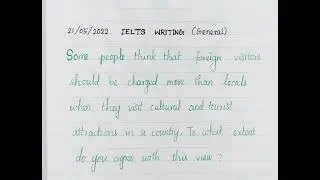 21/05/2022 IELTS WRITING (General)
Some people think that foreign visitors
should be charged more than locals
when they visit cultural and tourist
attractions in a country. To what extent
do you agree with this view?